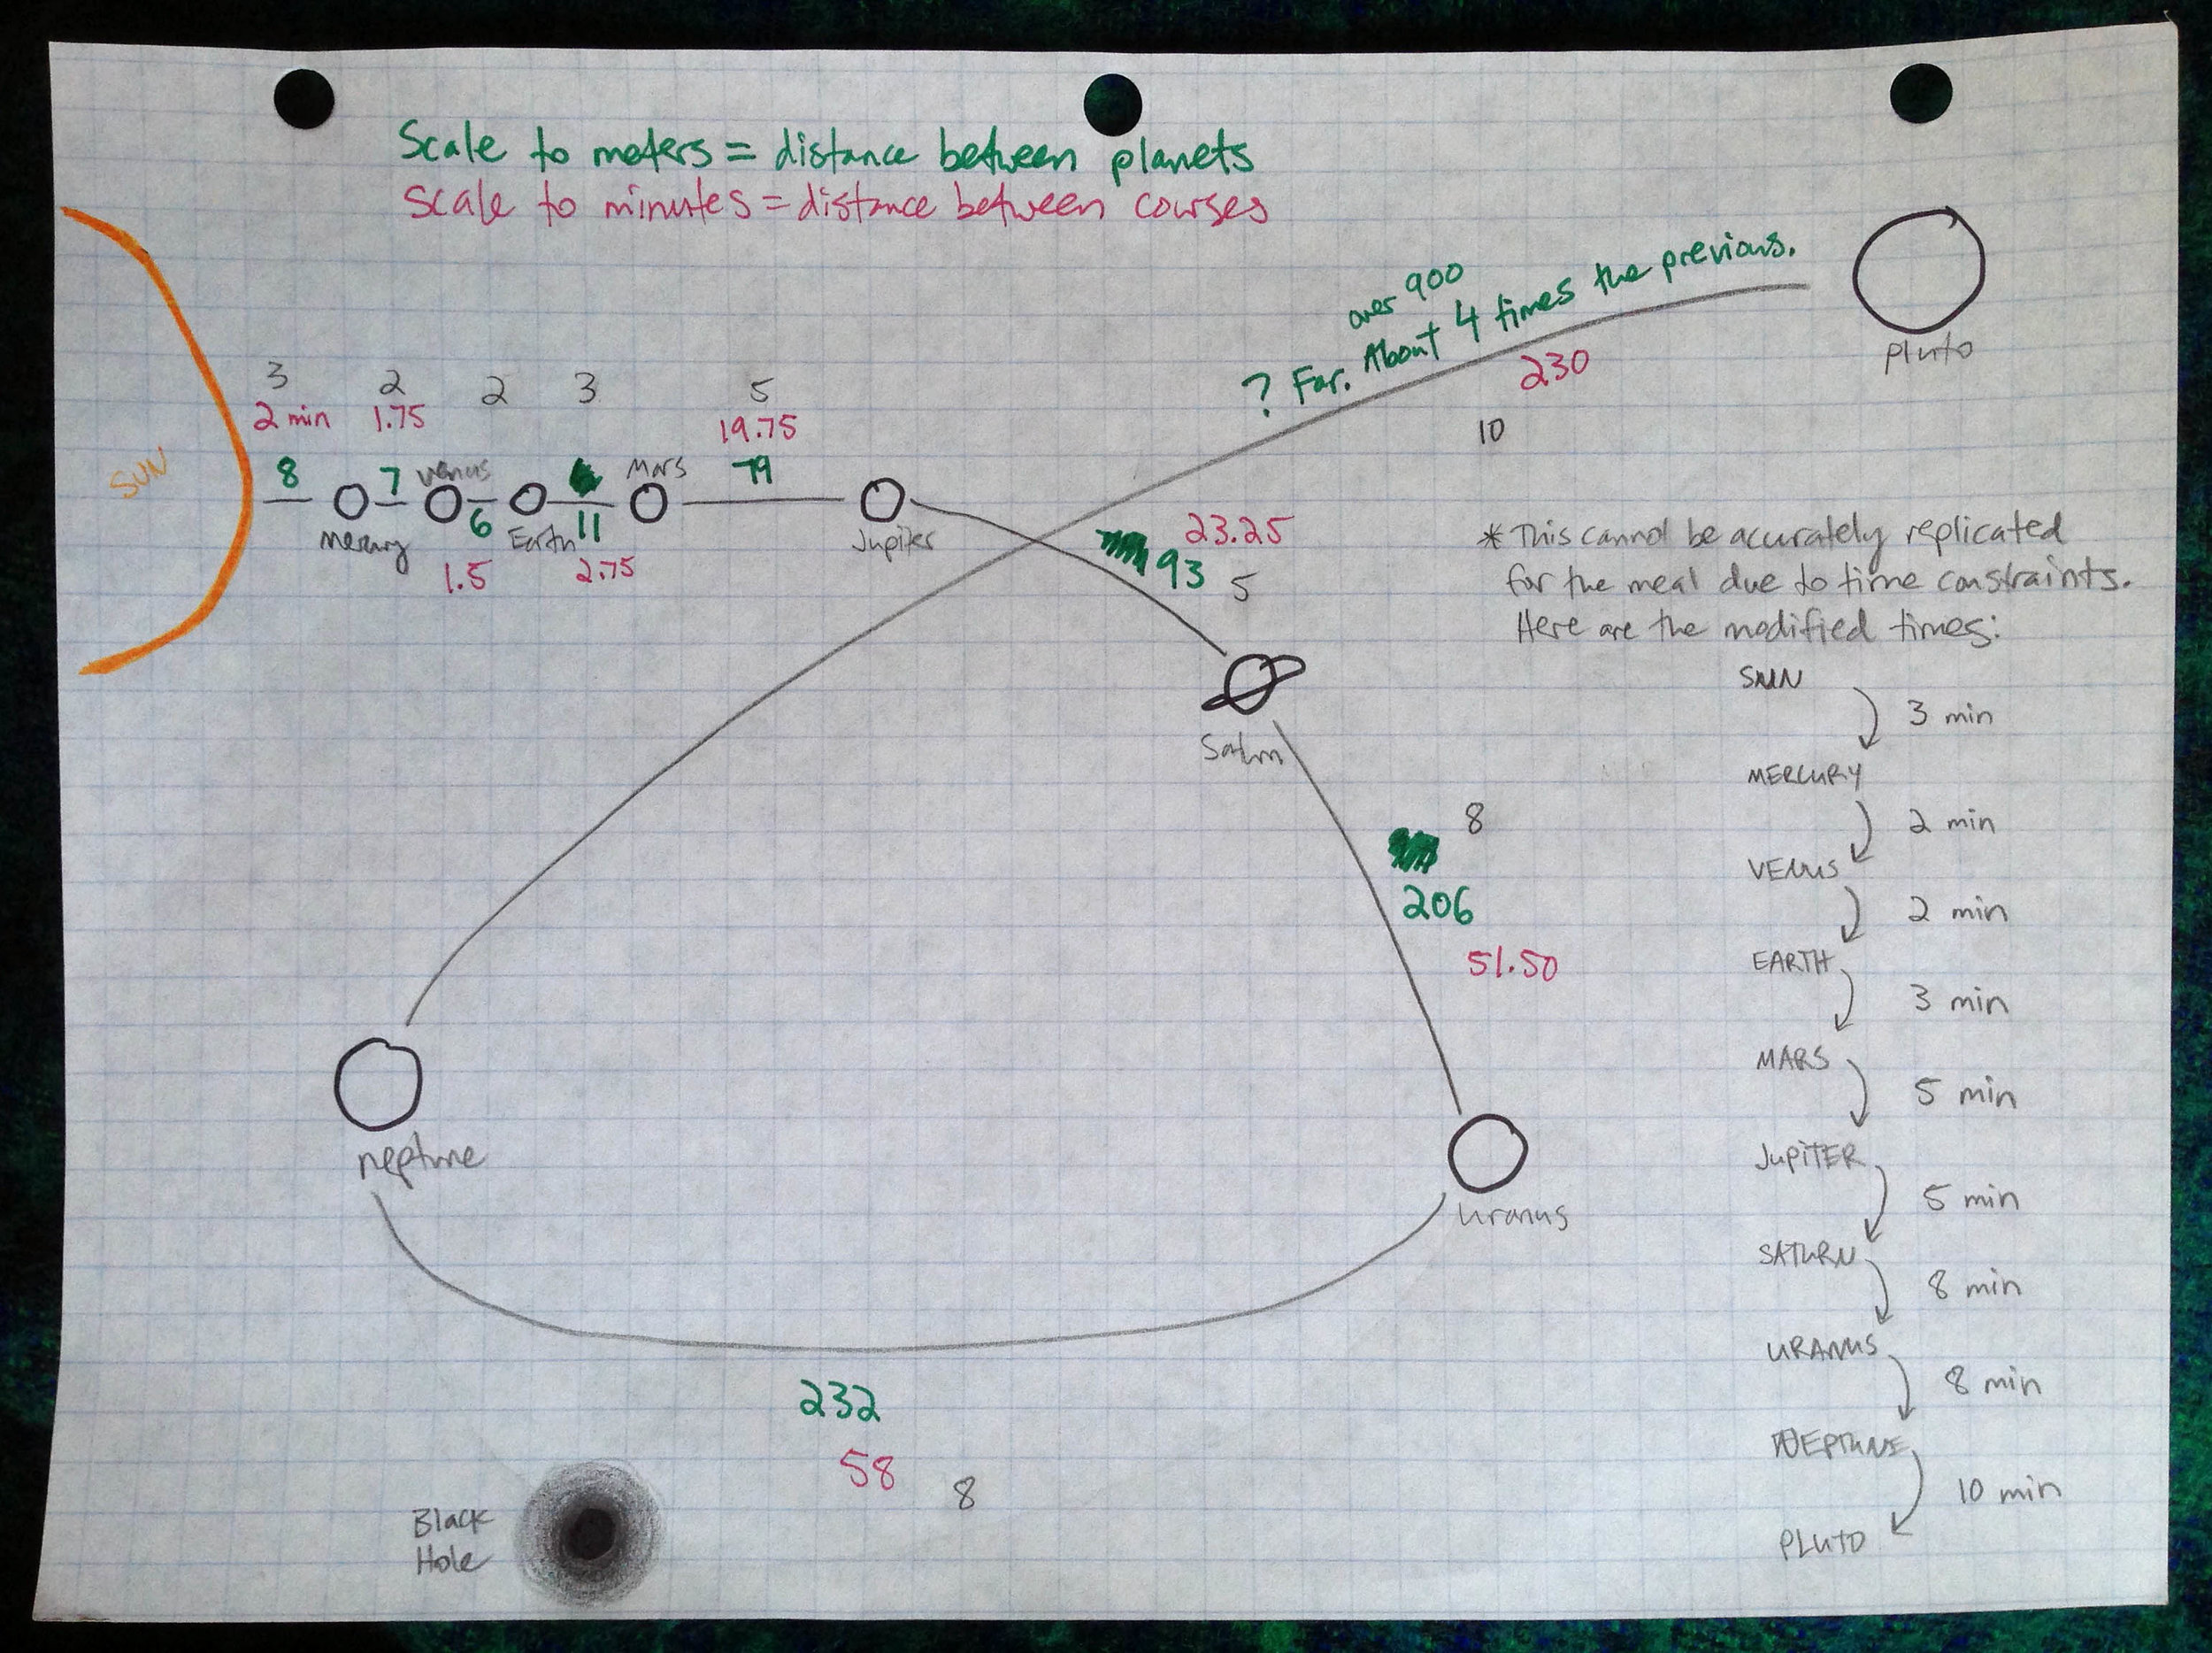 Scale to meters = distance between planets
Scale to minutes = distance between courses
over 900
? Far. About 4 times the previous.
230
10
Pluto
SUN
3 2 2 3 5
2 min 1.75 19.75
8 7 Venus Mars 79
Mercury 6 Earth 11 Jupiter
1.5 2.75
23.25
93
5
Saturn
8
206
51.50
Uranus
neptune
232
58
8
Black
Hole
* This cannot be accurately replicated
for the meal due to time constraints.
Here are the modified times:
SUN
3 min
MERCURY
2 min
VENUS
2 min
EARTH
3 min
MARS
5 min
JUPITER
5 min
SATURN
8 min
URANUS
8 min
NEPTUNE
10 min
PLUTO